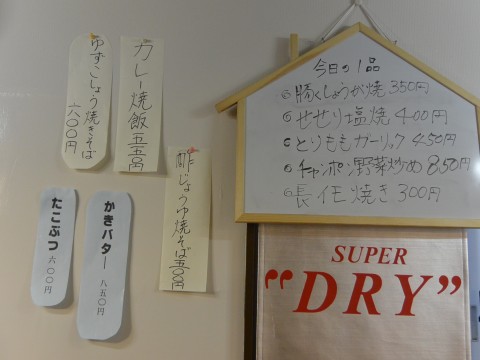 ゆずこしょう焼きそば
六〇〇円
カレー焼飯五五〇円
酢じょうゆ焼そば五〇〇円
たこぶつ
六〇〇円
かきバター
八五〇円
今日の1品
豚くしょうが焼 350円
せせり塩焼 400円
とりももガーリック 450円
チャンポン野菜炒め 850円
長イモ焼き 300円
SUPER
"DRY"